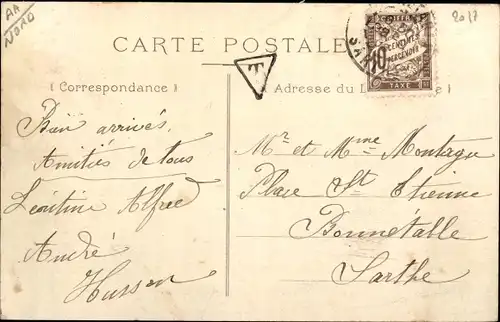 AA
NORD
2017
CARTE POSTALE
T
10
CENTIMES
À PERCEVOIR
TAXE
( Correspondance )
( Adresse du
Bien arrivés,
Amitiés de tous
Léontine Alfred
André
Husson
Mr et Mme Montagu
Place St Etienne
Bonnétable
Sarthe